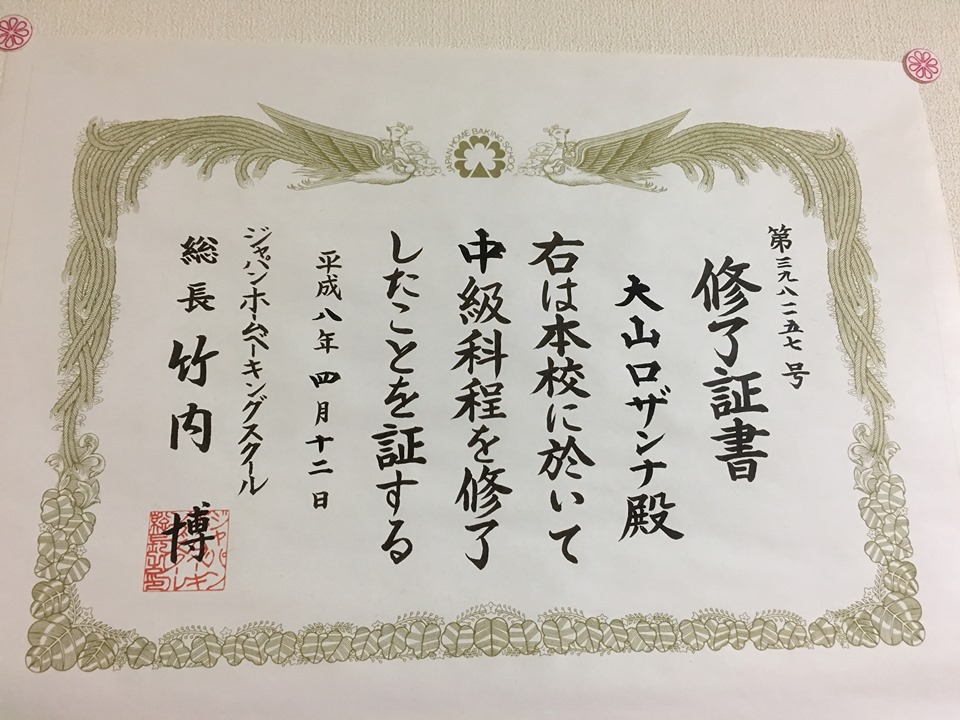 JAPAN HOME BAKING SCHOOL
第三九八二五七号
修了証書
大山ロザンナ殿
右は本校に於いて
中級科程を修了
したことを証する
平成八年四月十二日
ジャパンホームベーキングスクール
総長 竹内 博